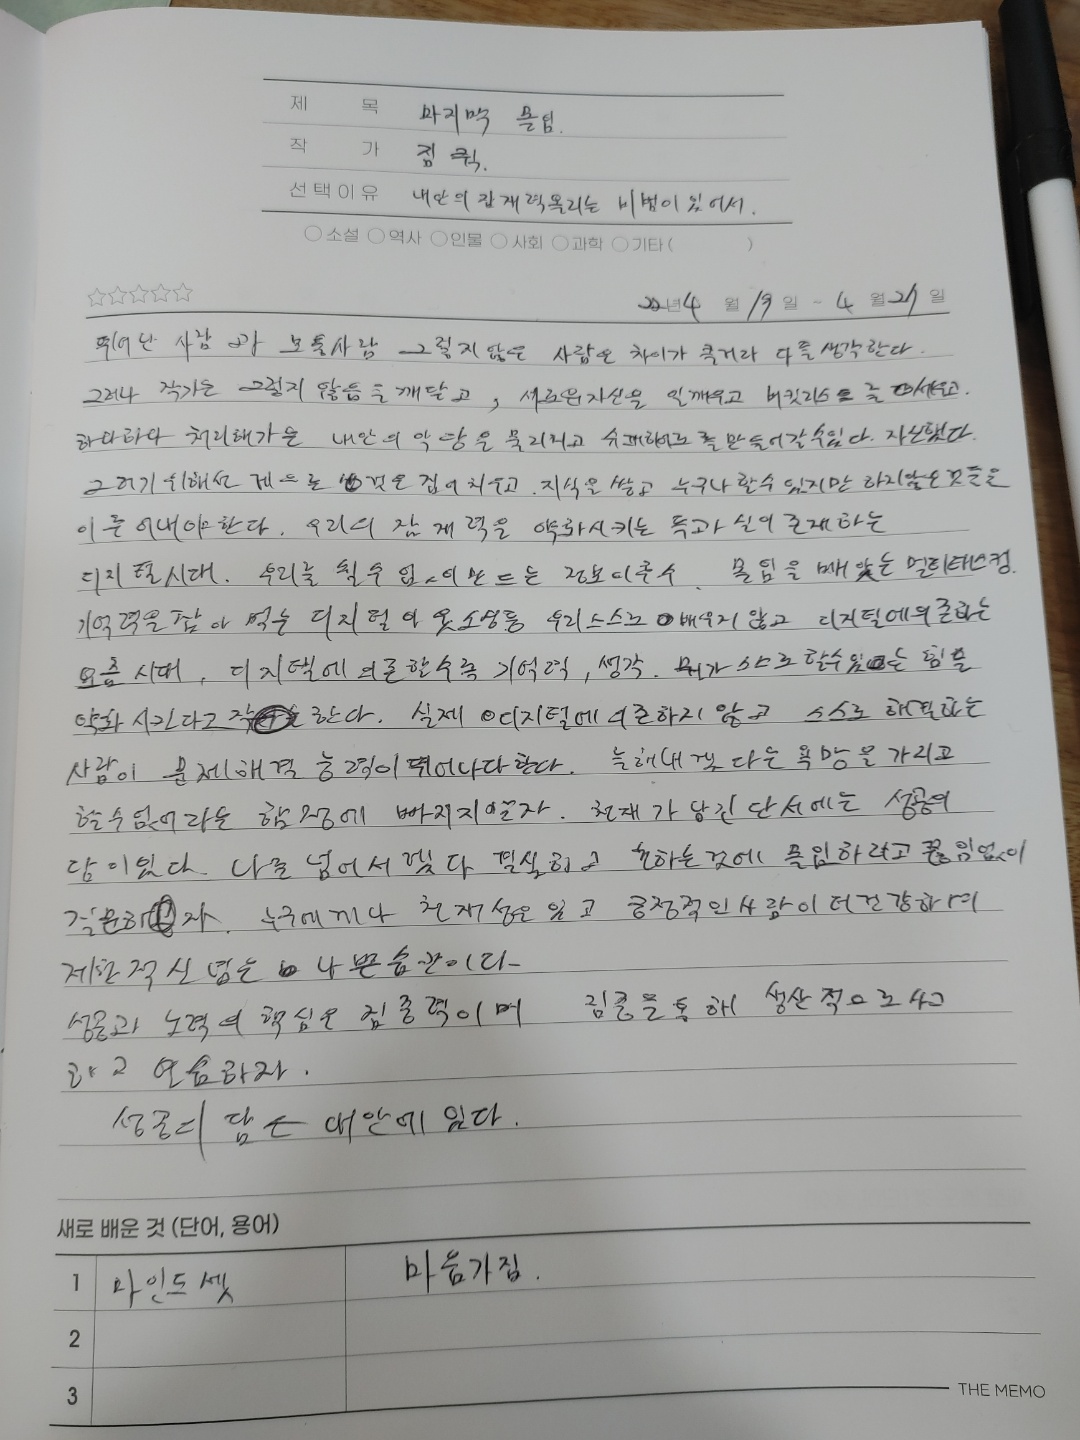 제 목 마지막 몰입.
작 가 짐 퀵.
선택이유 내안의 잠재력올리는 비법이 있어서.
○소설 ○역사 ○인물 ○사회 ○과학 ○기타( )
☆☆☆☆☆
22년 4 월 19 일 ~ 4 월 27 일
뛰어난 사람 과 보통사람 그렇지않은 사람은 차이가 클거라 다들생각한다.
그러나 작가는 그렇지 않음을 깨달고, 새로운자신을 일깨우고 버킷리스트를 세우고.
하나하나 처리해가는 내안의 악당을 물리치고 슈퍼히어로를만들어갈수있다. 자신했다.
그러기위해선 것은 집어치우고. 지식을 쌓고 누구나할수 있지만 하지않은것들을
이루어내야한다. 우리의 잠재력을 약화시키는 독과 실의 존재하는
디지털시대. 우리를 쉴수 없이만드는 정보이홍수. 몰입을 빼앗는멀티태스킹.
기억력을잡아 먹는 디지털의 우리스스로 배우지 않고 디지털에의존하는
요즘 시대, 디지털에 의존할수록 기억력, 생각. 뭐가 스스로 할수있는 힘을
약화 시킨다고 한다. 실제 디지털에 의존하지 않고 스스로 해결하는
사람이 문제해결 능력이 뛰어나다한다. 늘해내겠다는 욕망을 가리고
할수없어라는 함정에 빠지지말자. 천재가 남긴 단서에는 성공의
답이있다. 나를 넘어서겠다 결심하고 원하는것에 몰입하려고 끊임없이
질문하자. 누구에게나 천재성은 있고 긍정적인사람이 더건강하며
제한적신념은 나쁜습관이다-
성공과 노력의 핵심은 집중력이며 집중을통해 생산적으로 사고
하고 연습하자.
성공의 답은 내안에 있다.
새로 배운 것 (단어, 용어)
1 마인드셋 마음가짐.
2
3
THE MEMO